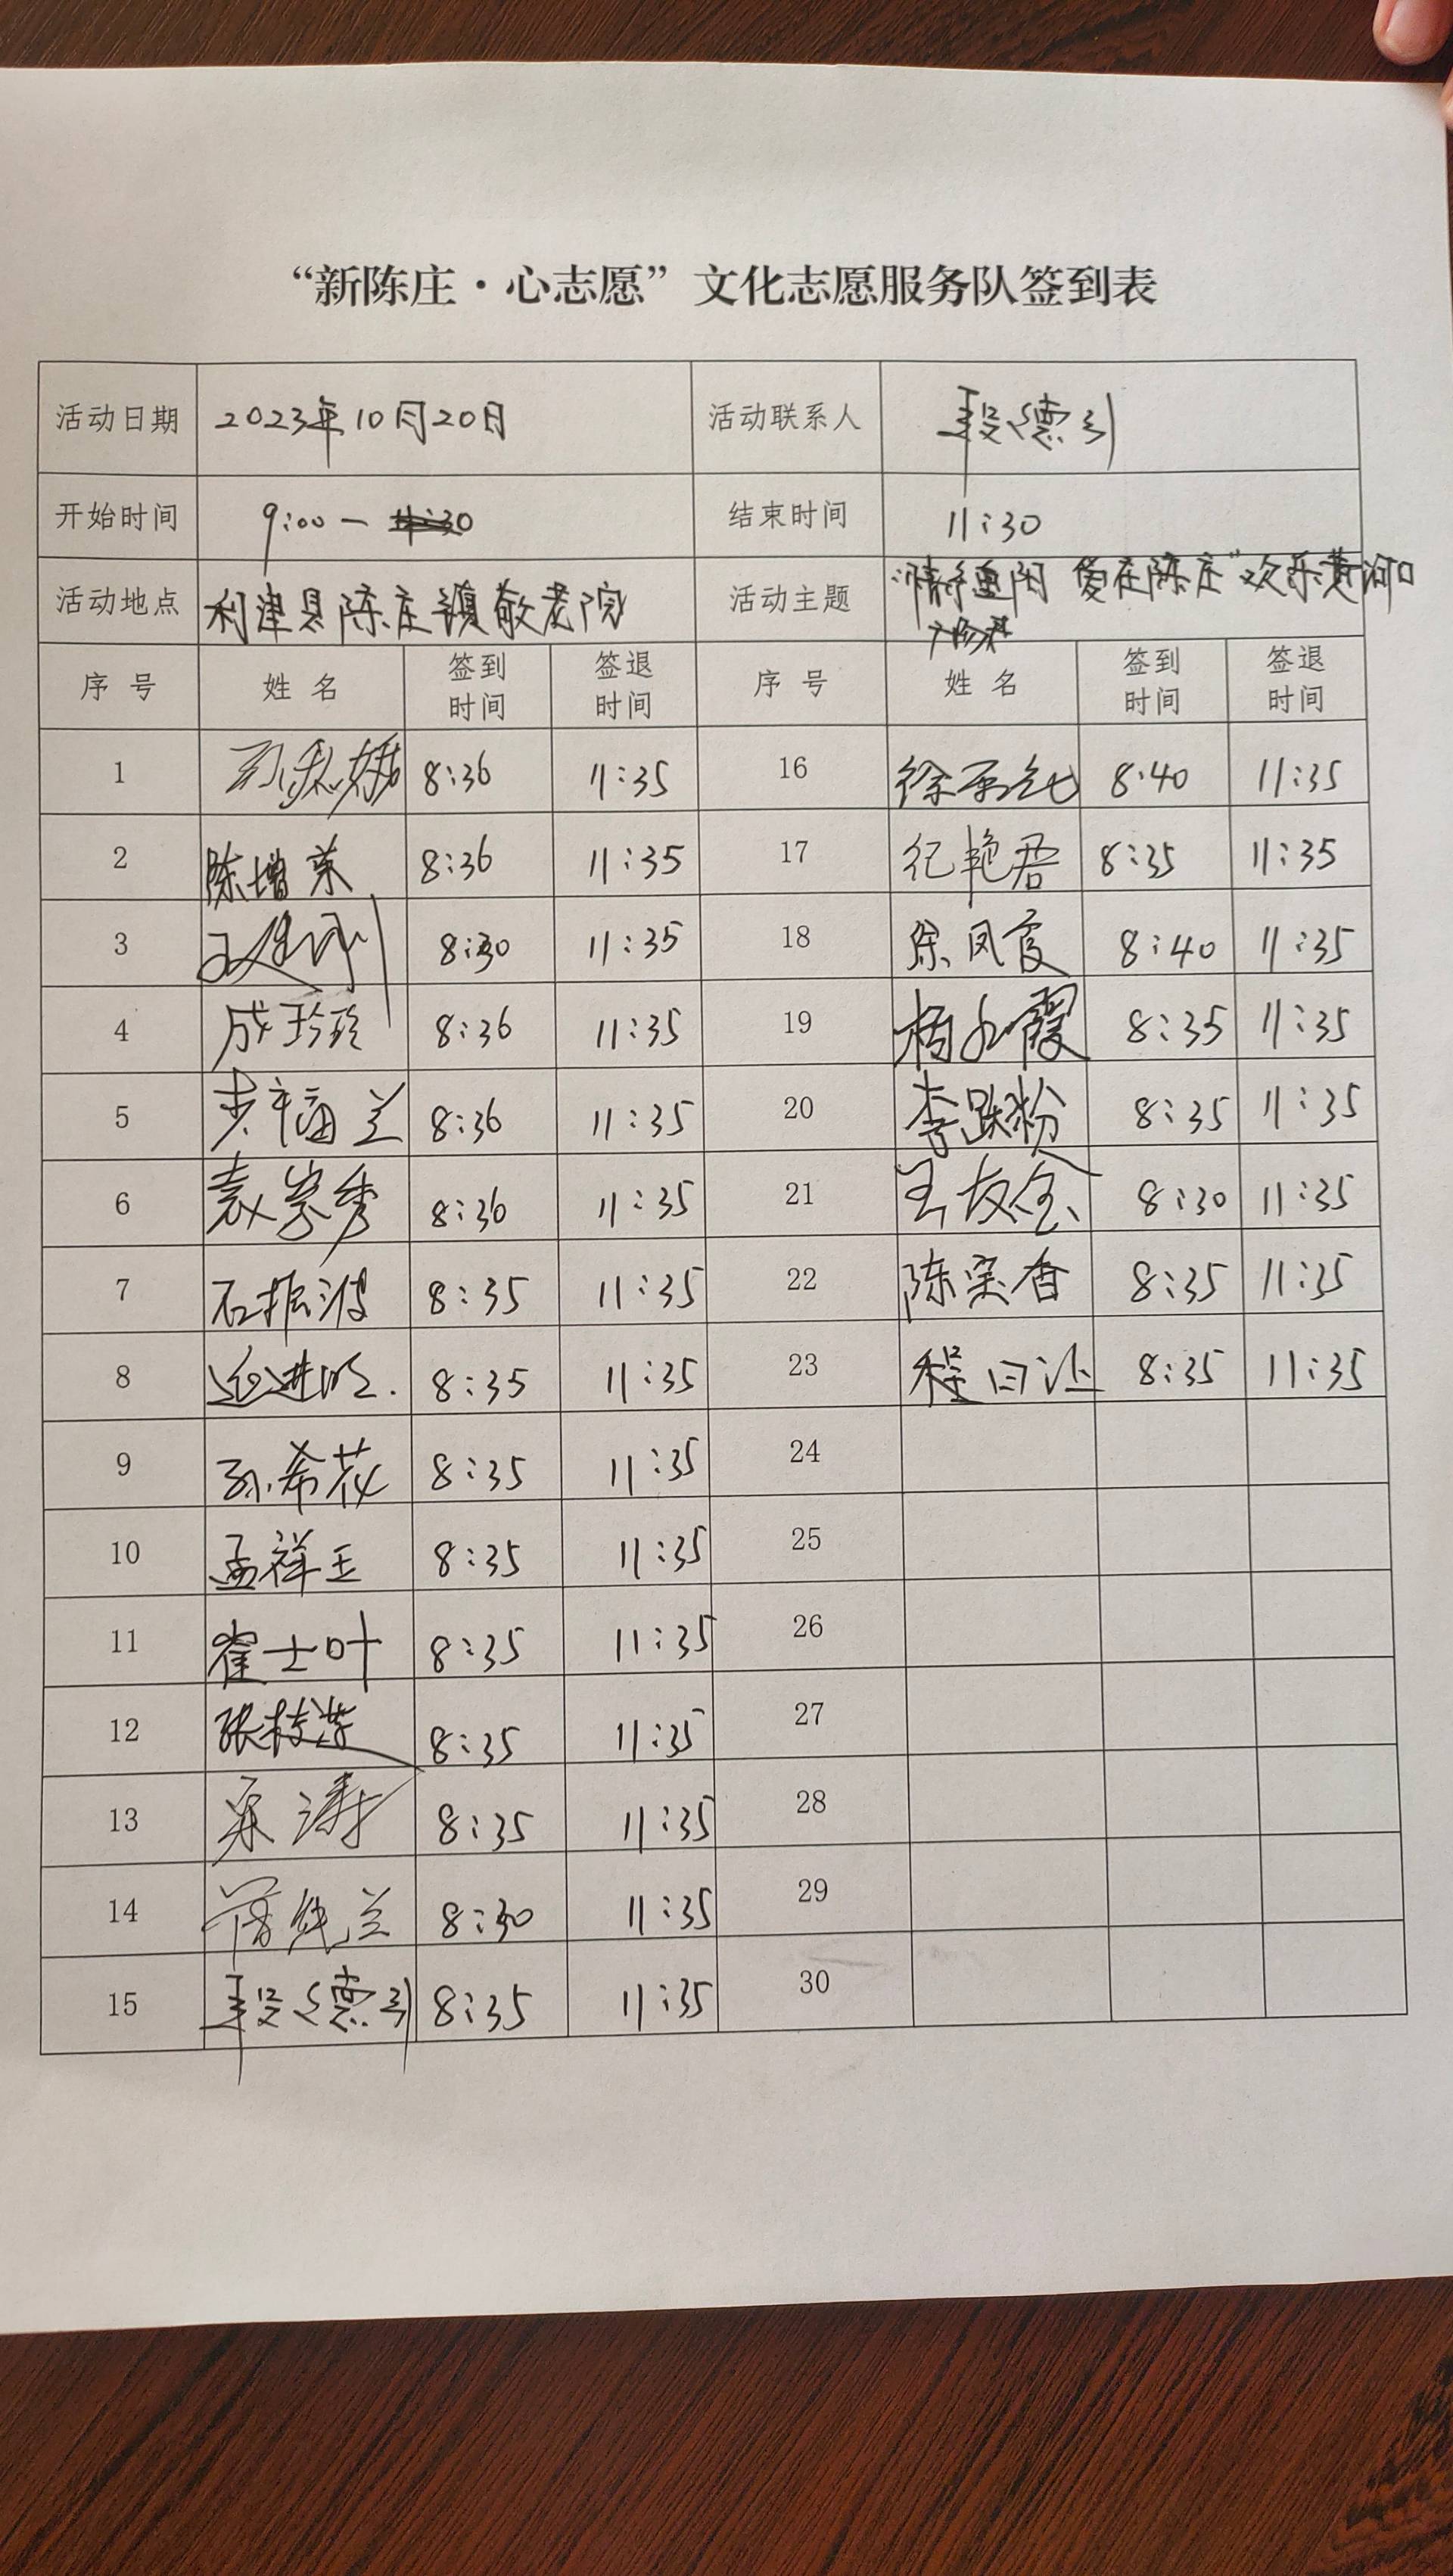 “新陈庄·心志愿”文化志愿服务队签到表
活动日期 2023年10月20日 活动联系人 段德引
开始时间 9:00— 结束时间 11:30
活动地点 利津县陈庄镇敬老院 活动主题 爱在陈庄”欢乐黄河口
序号 姓名 签到时间 签退时间 序号 姓名 签到时间 签退时间
1 8:36 11:35 16 徐 8:40 11:35
2 陈增荣 8:36 11:35 17 纪艳君 8:35 11:35
3 8:30 11:35 18 徐凤霞 8:40 11:35
4 成玲玲 8:36 11:35 19 杨 霞 8:35 11:35
5 福兰 8:36 11:35 20 李 粉 8:35 11:35
6 袁崇秀 8:36 11:35 21 8:30 11:35
7 石振波 8:35 11:35 22 陈宝香 8:35 11:35
8 8:35 11:35 23 程 8:35 11:35
9 孙希花 8:35 11:35 24
10 孟祥玉 8:35 11:35 25
11 崔士叶 8:35 11:35 26
12 张枝 8:35 11:35 27
13 涛 8:35 11:35 28
14 兰 8:30 11:35 29
15 段德引 8:35 11:35 30